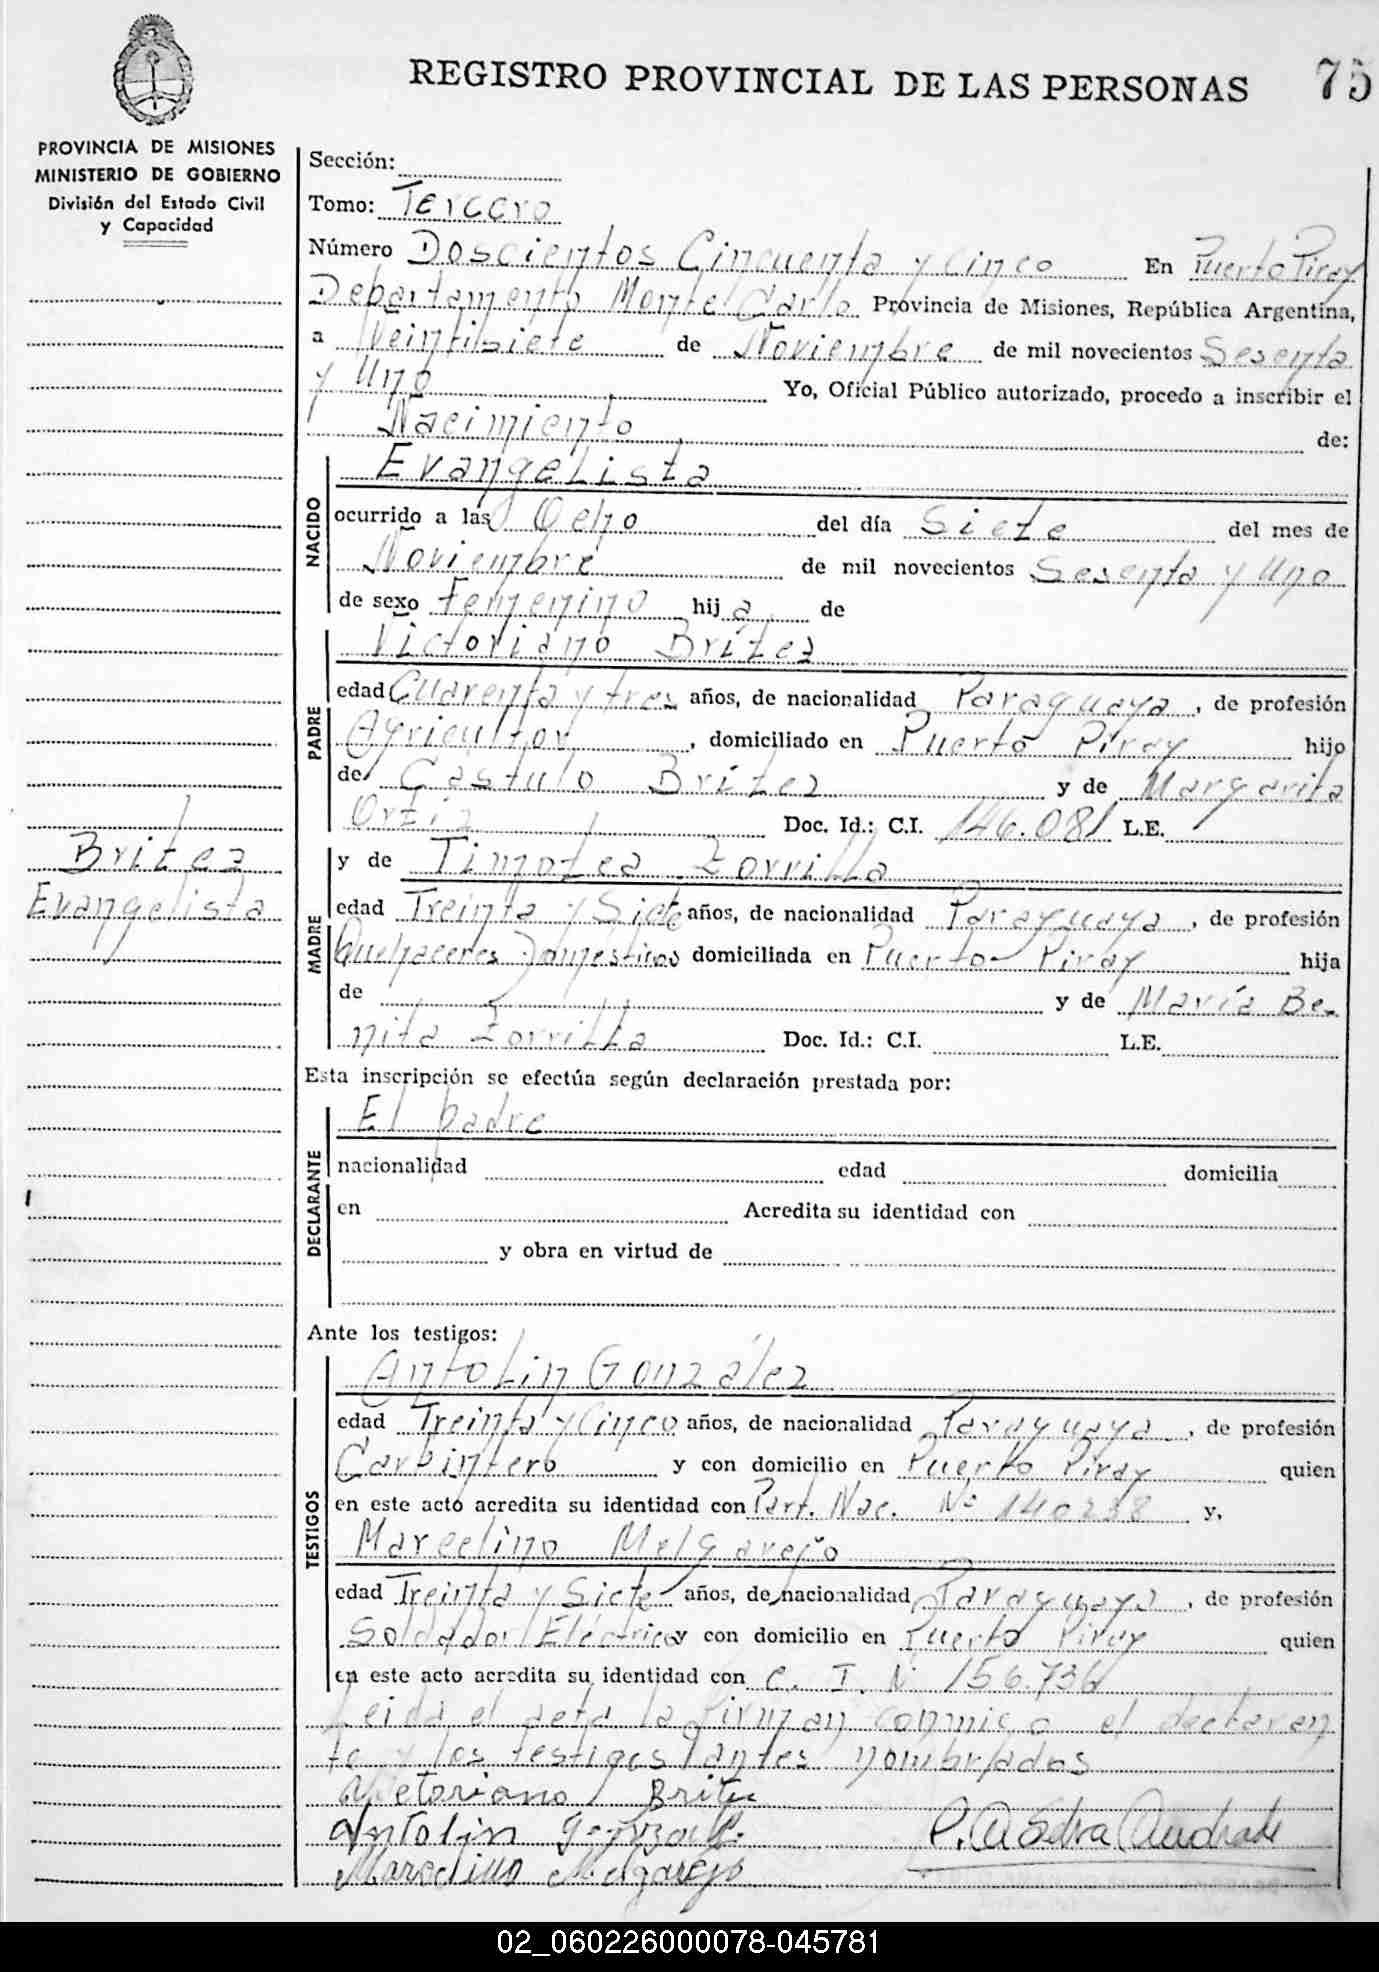 REGISTRO PROVINCIAL DE LAS PERSONAS 75
PROVINCIA DE MISIONES
MINISTERIO DE GOBIERNO
División del Estado Civil
y Capacidad
Britez
Evangelista
Sección:
Tomo: Tercero
Número Doscientos Cincuenta y Cinco En Puerto Piray
Departamento Monte Carlo Provincia de Misiones, República Argentina,
a Veintisiete de Noviembre de mil novecientos Sesenta
y Uno Yo, Oficial Público autorizado, procedo a inscribir el
Nacimiento de:
NACIDO
Evangelista
ocurrido a las Ocho del día Siete del mes de
Noviembre de mil novecientos Sesenta y Uno
de sexo Femenino hija de
PADRE
Victoriano Brítez
edad Cuarenta y tres años, de nacionalidad Paraguaya, de profesión
Agricultor, domiciliado en Puerto Piray hijo
de Cástulo Brítez y de Margarita
Ortiz Doc. Id.: C.I. 146.081 L.E.
y de Timotea Zorrilla
MADRE
edad Treinta y Siete años, de nacionalidad Paraguaya, de profesión
Quehaceres Domésticos domiciliada en Puerto Piray hija
de y de María Be-
nita Zorrilla Doc. Id.: C.I. L.E.
Esta inscripción se efectúa según declaración prestada por:
DECLARANTE
El padre
nacionalidad edad domicilia
en Acredita su identidad con
y obra en virtud de
Ante los testigos:
TESTIGOS
Antolin González
edad Treinta y Cinco años, de nacionalidad Paraguaya, de profesión
Carpintero y con domicilio en Puerto Piray quien
en este acto acredita su identidad con Part. Nac. Nº 140238 y,
Marcelino Melgarejo
edad Treinta y Siete años, de nacionalidad Paraguaya, de profesión
Soldador Eléctrico y con domicilio en Puerto Piray quien
en este acto acredita su identidad con C. I. N 156.736
Leida el acta la firman conmigo el declaran
te y los testigos antes nombrados
Victoriano Britez
Antolin González
P. A Silva Andrade
Marcelino Melgarejo
02_060226000078-045781